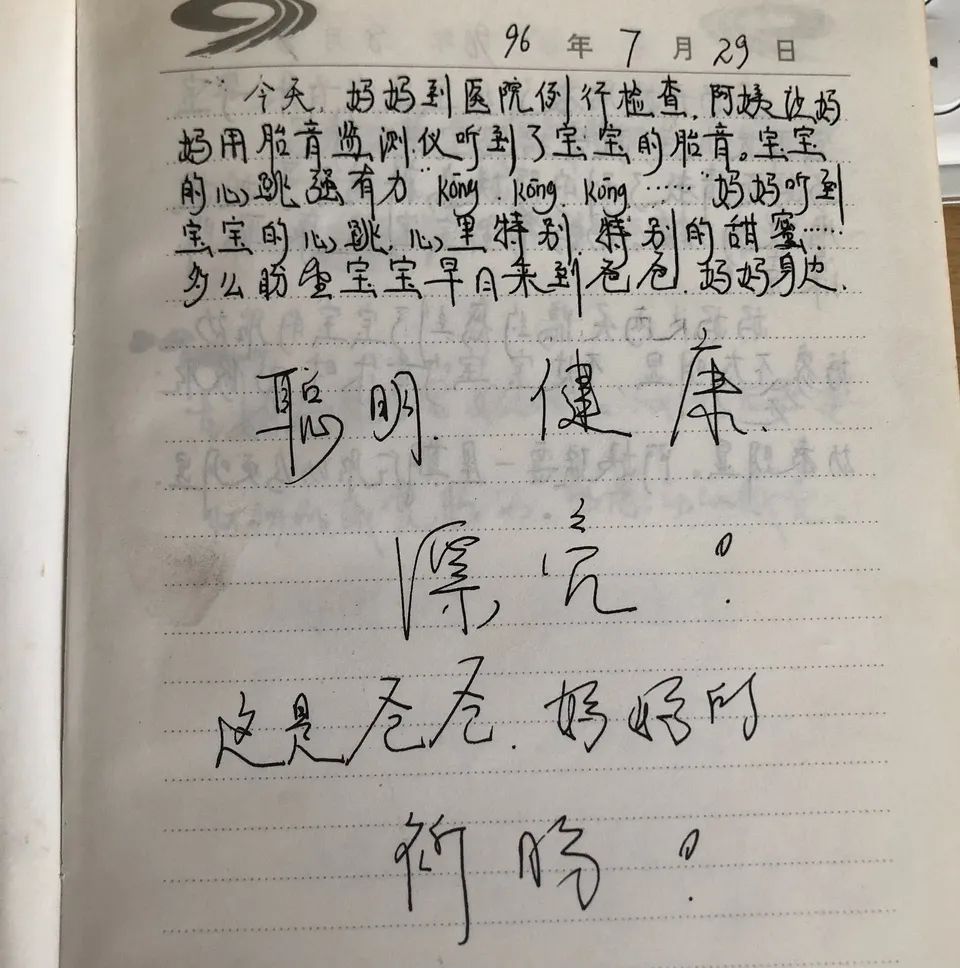 96 年 7 月 29 日
今天，妈妈到医院例行检查，阿姨让妈
妈用胎音监测仪听到了宝宝的胎音。宝宝
的心跳强有力“kōng kōng kōng……”妈妈听到
宝宝的心跳，心里特别、特别的甜蜜……
多么盼望宝宝早日来到爸爸、妈妈身边，
聪明、健康、
漂亮！
这是爸爸、妈妈的
祈盼！